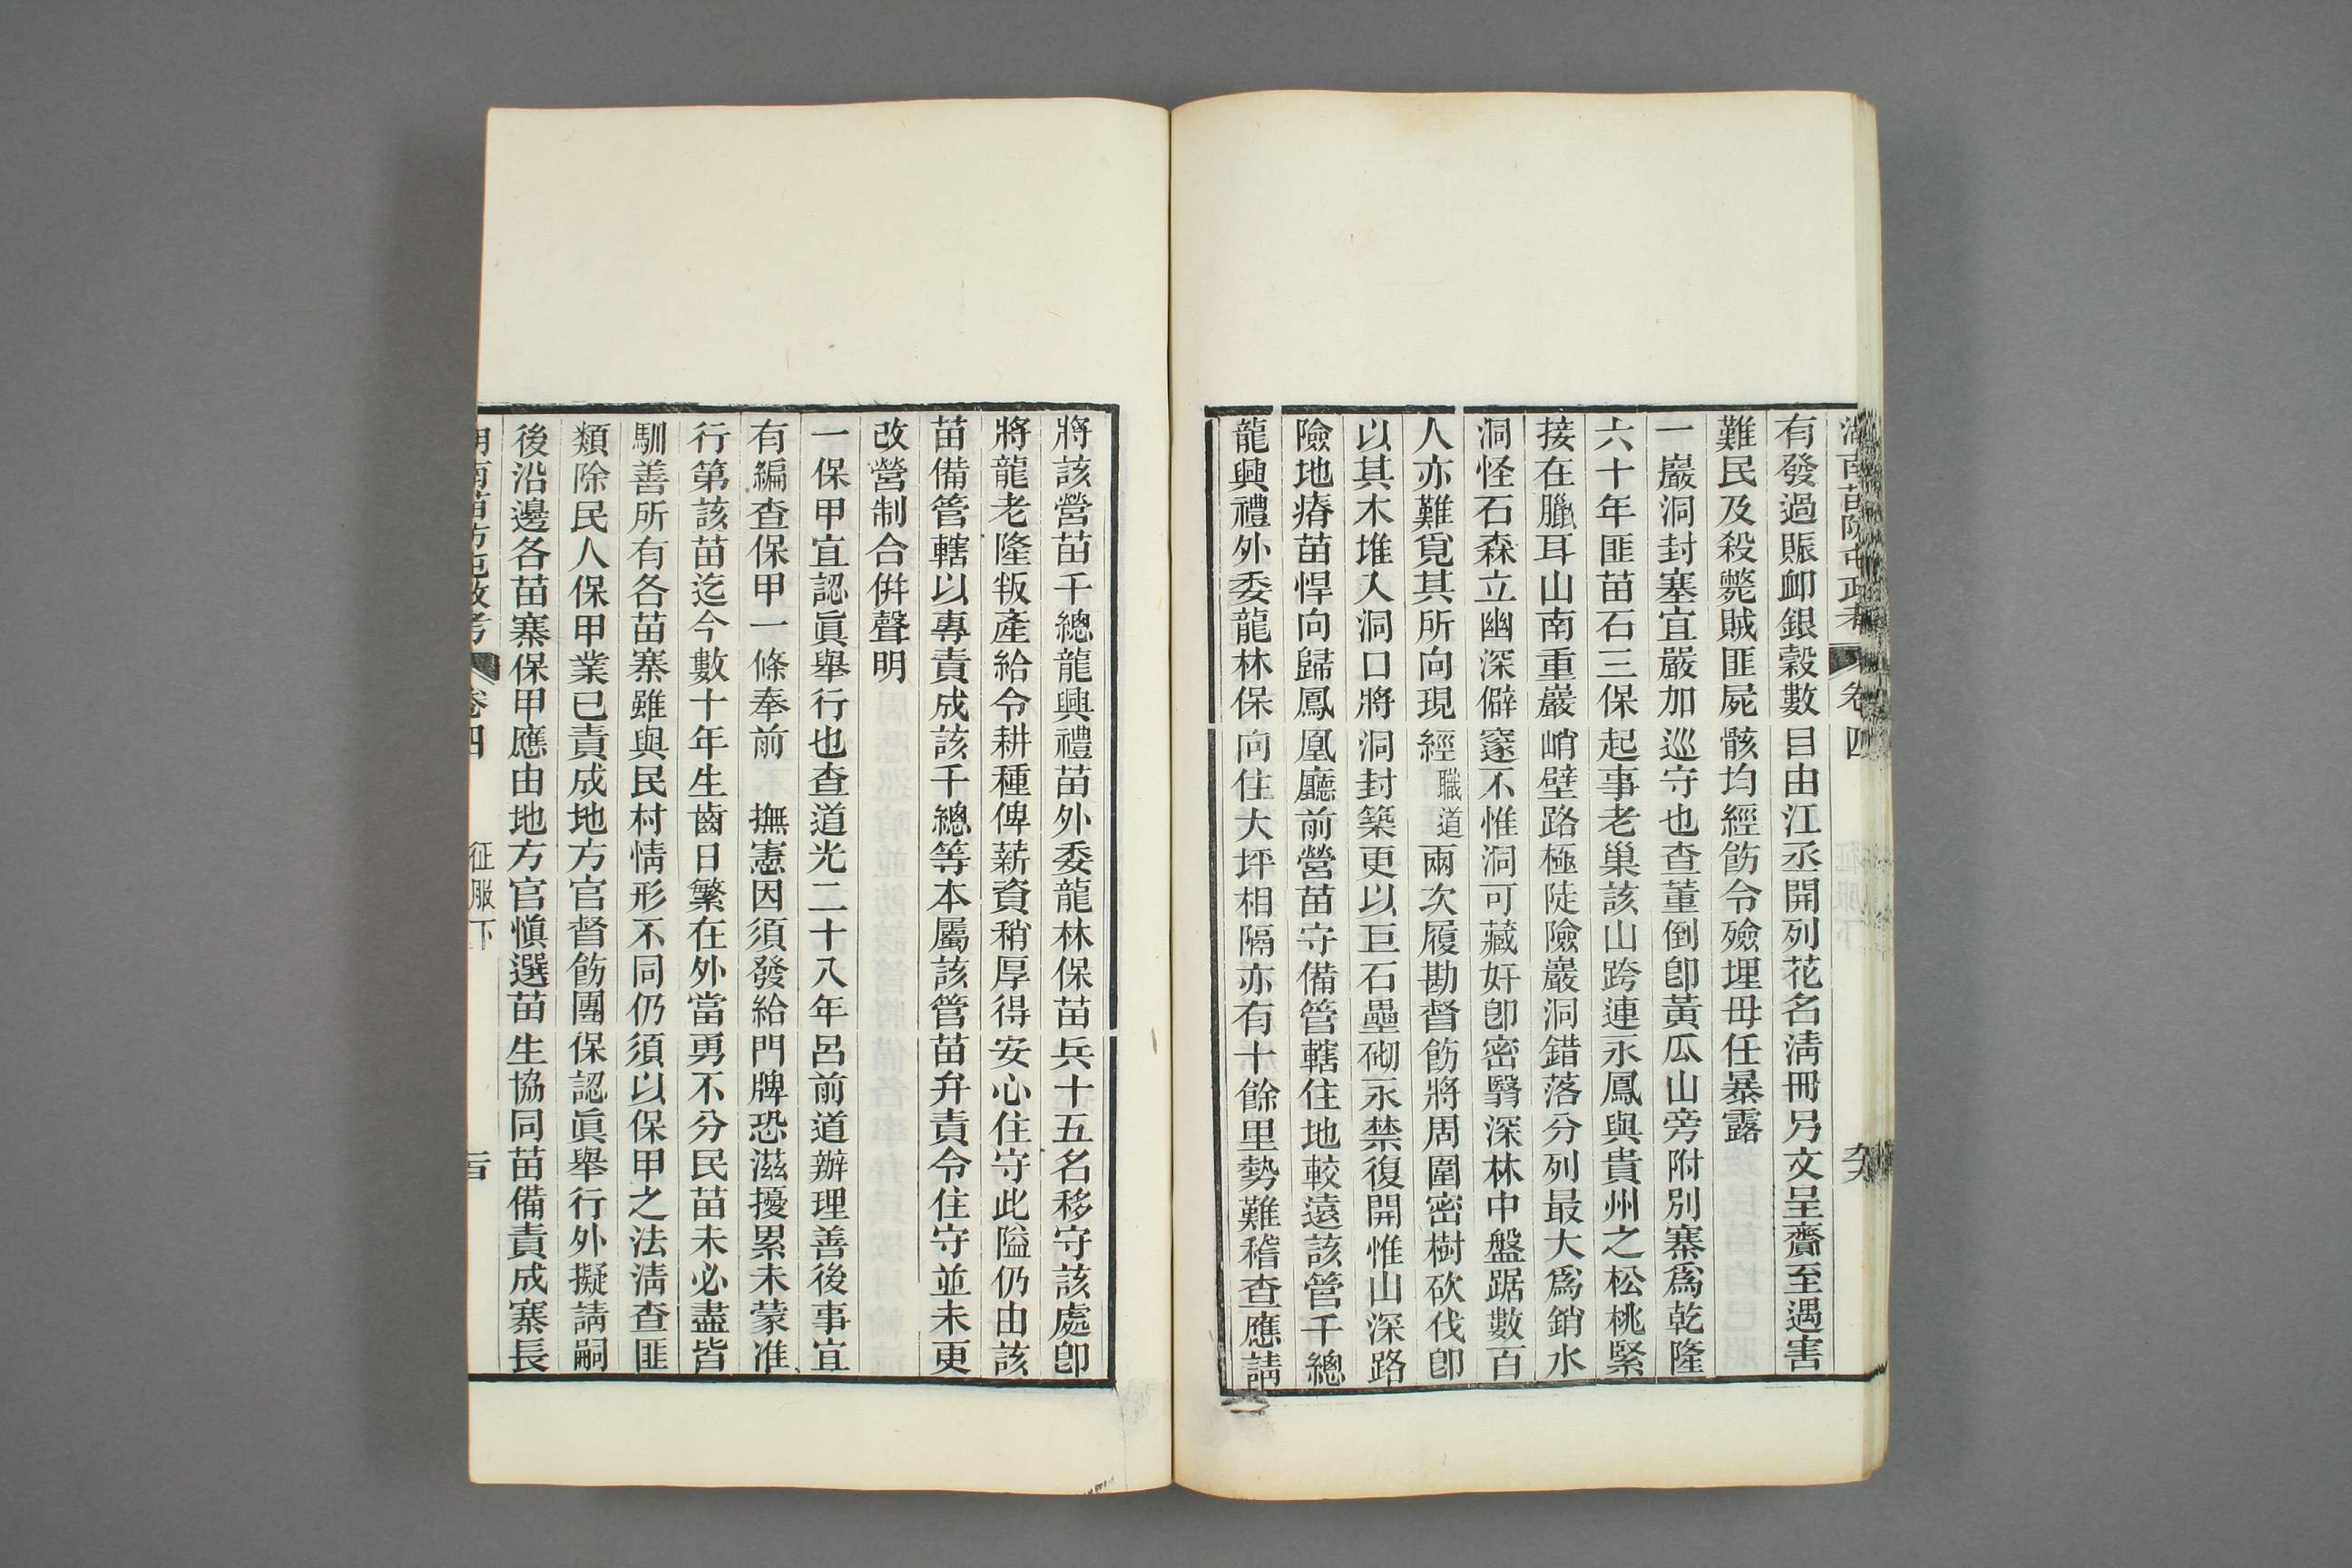 湖南苗防屯政考 卷四
有發過賑卹銀穀數目由江丞開列花名淸冊另文呈齎至遇害
難民及殺斃賊匪屍骸均經飭令殮埋毋任暴露
一巖洞封塞宜嚴加巡守也查董倒卽黃瓜山旁附別寨爲乾隆
六十年匪苗石三保起事老巢該山跨連永鳳與貴州之松桃緊
接在臘耳山南重巖峭壁路極陡險巖洞錯落分列最大爲銷水
洞怪石森立幽深僻窵不惟洞可藏奸卽密翳深林中盤踞數百
人亦難覓其所向現經職道兩次履勘督飭將周圍密樹砍伐卽
以其木堆入洞口將洞封築更以巨石壘砌永禁復開惟山深路
險地瘠苗悍向歸鳳凰廳前營苗守備管轄住地較遠該管千總
龍興禮外委龍林保向住大坪相隔亦有十餘里勢難稽查應請
將該營苗千總龍興禮苗外委龍林保苗兵十五名移守該處卽
將龍老隆叛產給令耕種俾薪資稍厚得安心住守此隘仍由該
苗備管轄以專責成該千總等本屬該管苗弁責令住守並未更
改營制合倂聲明
一保甲宜認眞舉行也查道光二十八年呂前道辦理善後事宜
有編查保甲一條奉前　撫憲因須發給門牌恐滋擾累未蒙准
行第該苗迄今數十年生齒日繁在外當勇不分民苗未必盡皆
馴善所有各苗寨雖與民村情形不同仍須以保甲之法淸查匪
類除民人保甲業已責成地方官督飭團保認眞舉行外擬請嗣
後沿邊各苗寨保甲應由地方官愼選苗生協同苗備責成寨長
湖南苗防屯政考 卷四 征服下